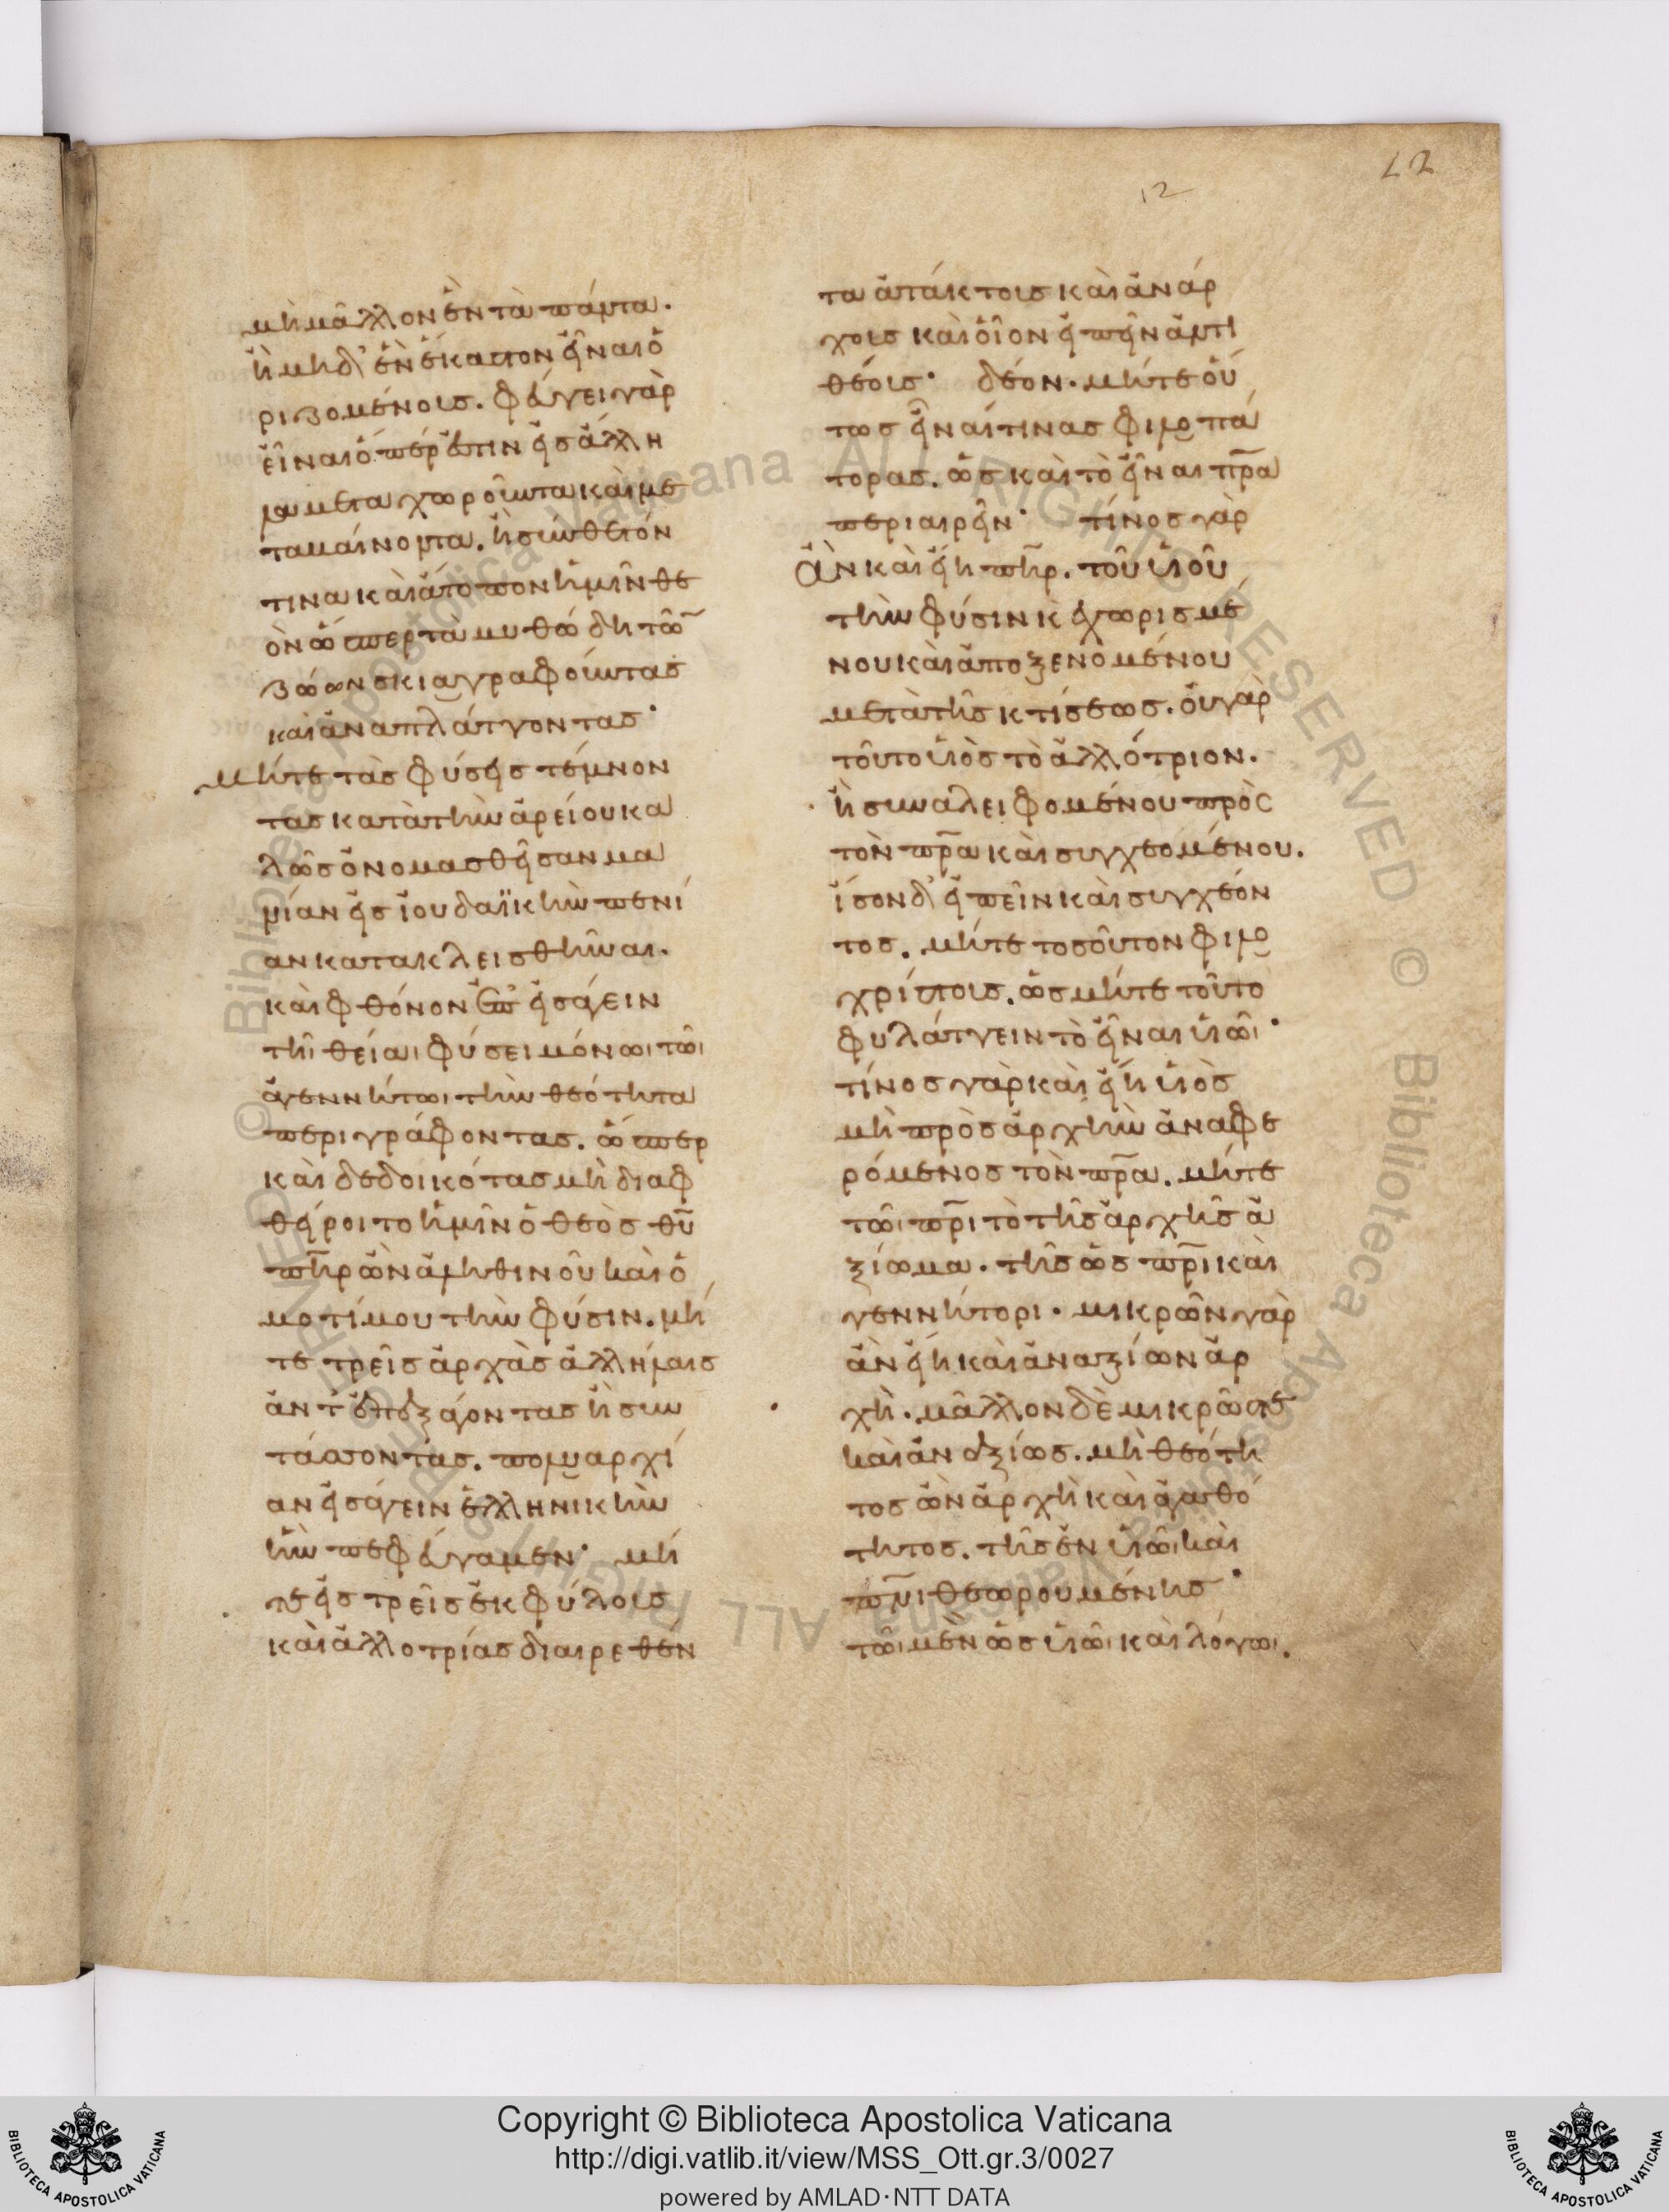 12
12
μὴ μᾶλλον ἓν τὰ πάντα.
ἢ μηδ' ἓν ἕκαστον εἶναι ὁ
ριζομένοις. φεύγει γὰρ
εἶναι ὅπερ ἐστὶν εἰς ἄλλη
λα μεταχωροῦντα καὶ με
ταβαίνοντα. ἢ σύνθετόν
τινα καὶ ἄτοπον ἡμῖν θε
ὸν ὥσπερ τὰ μυθώδη τῶν
ζώων σκιαγραφοῦντας
καὶ ἀναπλάττοντας·
μήτε τὰς φύσεις τέμνον
τας κατὰ τὴν ἀρείου κα
λῶς ὀνομασθεῖσαν μα
νίαν εἰς ἰουδαϊκὴν πενί
αν κατακλεισθῆναι.
καὶ φθόνον ἐπεισάγειν
τῆι θείαι φύσει μόνωι τῶι
ἀγεννήτωι τὴν θεότητα
περιγράφοντας. ὥσπερ
καὶ δεδοικότας μὴ διαφ
θείροιτο ἡμῖν ὁ θεὸς θῦ
πῆρ ὢν ἀληθινοῦ καὶ ὁ
μοτίμου τὴν φύσιν. μή
τε τρεῖς ἀρχὰς ἀλλήλαις
ἀντεπεξάγοντας ἢ συν
τάσσοντας. πολυαρχί
αν εἰσάγειν ἑλληνικὴν
ἣν πεφεύγαμεν· μή
τε εἰς τρεῖς ἐκφύλοις
καὶ ἀλλοτρίας διαιρεθέν
τα ἀτάκτοις καὶ ἀνάρ
χοις καὶ οἷον εἰπεῖν ἀντι
θέοις· δέον. μήτε οὕ
τως εἶναί τινας φιλοπά
τορας. ὡς καὶ τὸ εἶναι πρα
περιαιρεῖν· τίνος γὰρ
ἂν καὶ εἴη πηρ. τοῦ υἱοῦ
τὴν φύσιν κεχωρισμέ
νου καὶ ἀποξενομένου
μετὰ τῆς κτίσεως. οὐ γὰρ
τοῦτο υἱὸς τὸ ἀλλότριον.
ἢ συναλειφομένου πρὸς
τὸν πρα καὶ συγχεομένου.
ἴσον δ' εἰπεῖν καὶ συγχέον
τος. μήτε τοσοῦτον φιλο
χρίστοις. ὡς μήτε τοῦτο
φυλάττειν τὸ εἶναι υἱῶι·
τίνος γὰρ καὶ εἴη υἱὸς
μὴ πρὸς ἀρχὴν ἀναφε
ρόμενος τὸν πρα. μήτε
τῶι πρι τὸ τῆς ἀρχῆς ἀ
ξίωμα. τῆς ὡς πρι καὶ
γεννήτορι. μικρῶν γὰρ
ἂν εἴη καὶ ἀναξίων ἀρ
χὴ. μᾶλλον δὲ μικρῶς τε
καὶ ἀναξίως. μὴ θεότη
τος ὢν ἀρχὴ καὶ ἀγαθό
τητος. τῆς ἐν υἱῶι καὶ
πνι θεωρουμένης·
τῶι μὲν ὡς υἱῶι καὶ λόγωι.
© Biblioteca Apostolica Vaticana ALL RIGHTS RESERVED
Copyright © Biblioteca Apostolica Vaticana
http://digi.vatlib.it/view/MSS_Ott.gr.3/0027
powered by AMLAD·NTT DATA
BIBLIOTECA APOSTOLICA VATICANA
BIBLIOTECA APOSTOLICA VATICANA